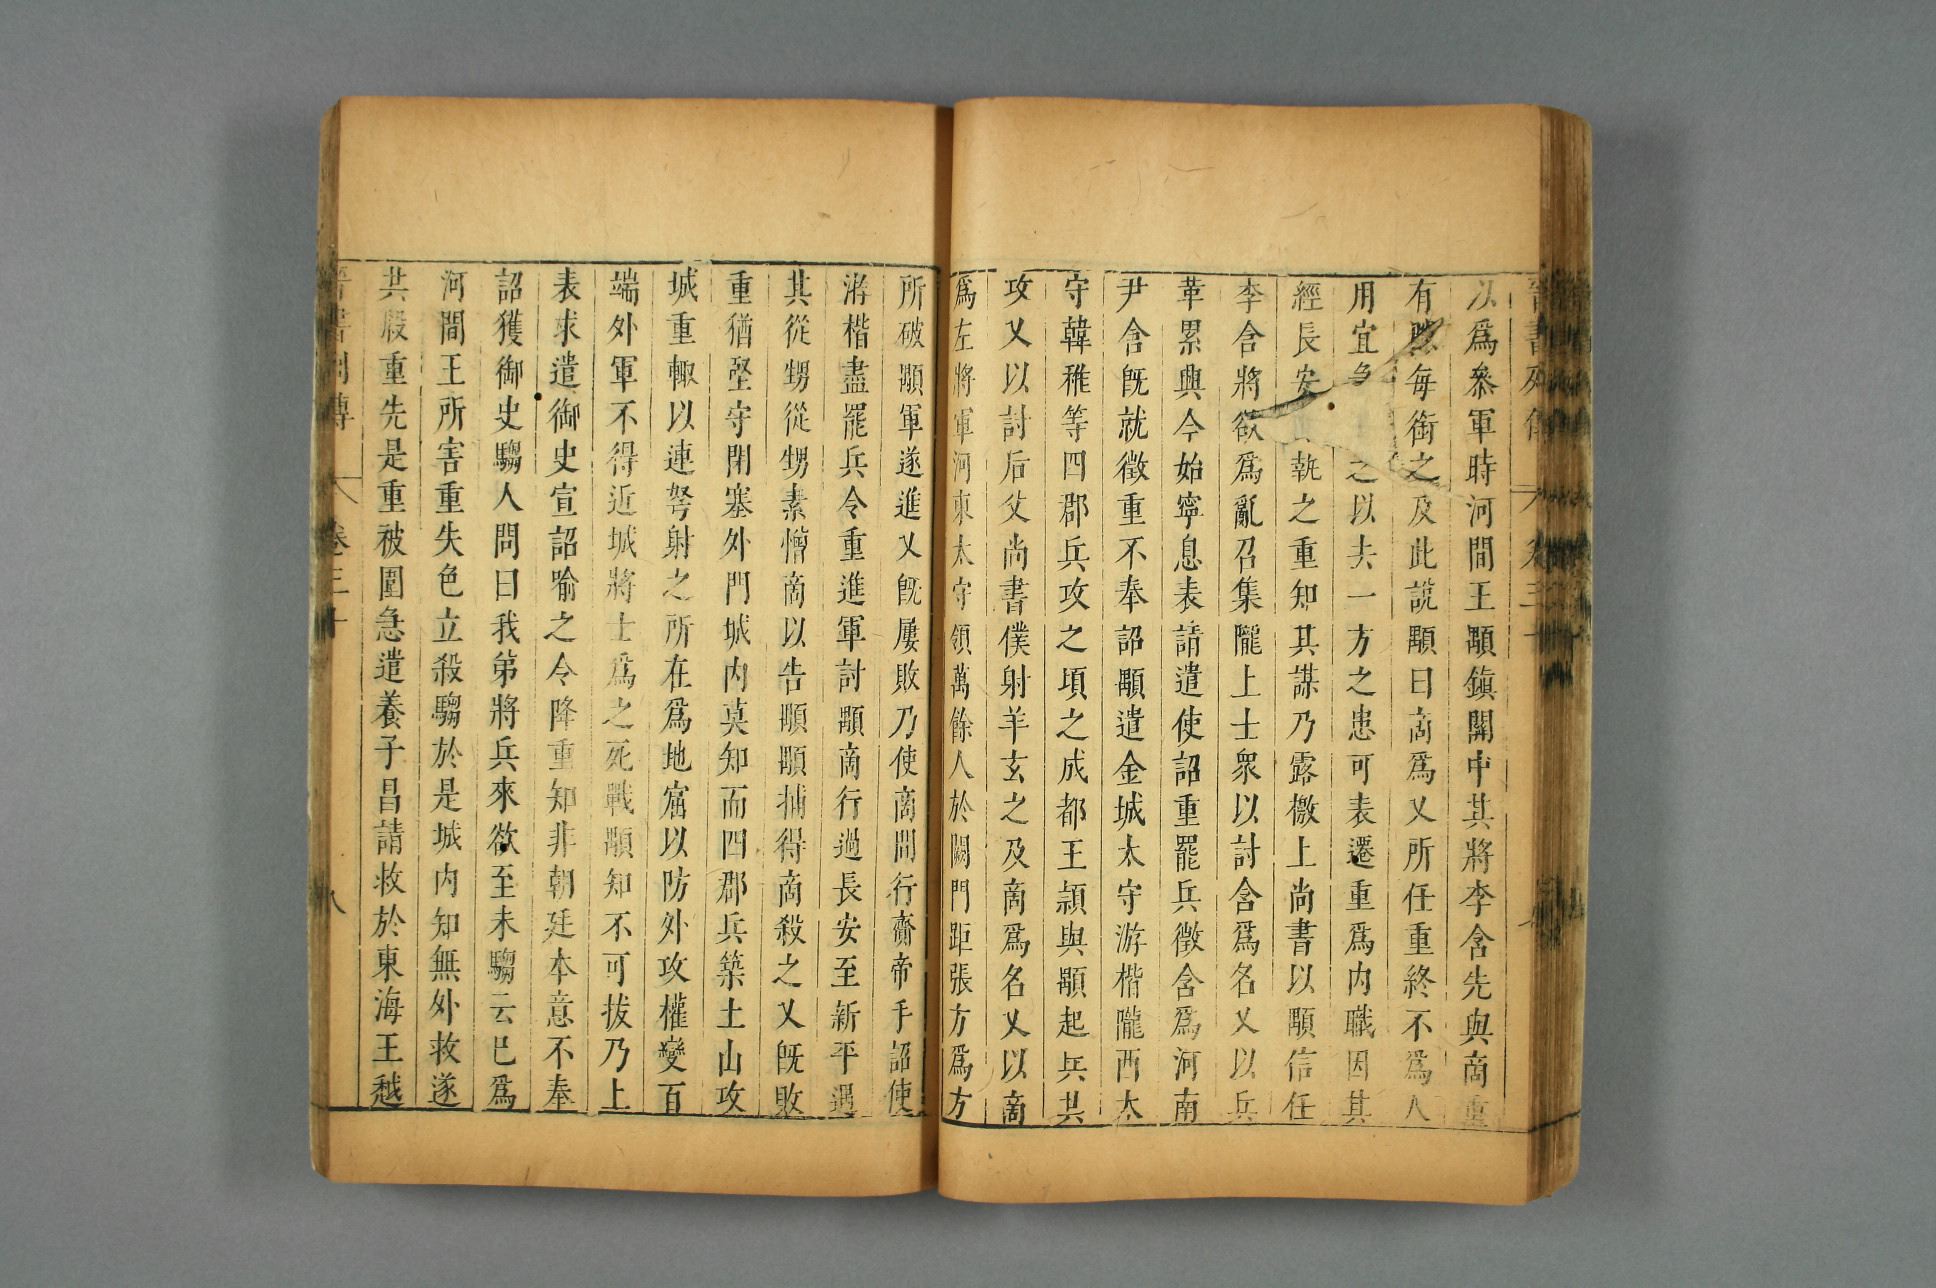 以爲參軍時河間王顒鎭關中其將李含先與商重
有隙每銜之及此說顒曰商爲乂所任重終不爲人
用宜急之以去一方之患可表遷重爲内職因其
經長安執之重知其謀乃露檄上尚書以顒信任
李含將欲爲亂召集隴上士衆以討含爲名乂以兵
革累興今始寧息表請遣使詔重罷兵徵含爲河南
尹含旣就徵重不奉詔顒遣金城太守游楷隴西太
守韓稚等四郡兵攻之頃之成都王頴與顒起兵共
攻乂以討后父尚書僕射羊玄之及商爲名乂以商
爲左將軍河東太守領萬餘人於闕門距張方爲方
所破顒軍遂進乂旣屢敗乃使商間行齎帝手詔使
游楷盡罷兵令重進軍討顒商行過長安至新平遇
其從甥從甥素憎商以告顒顒捕得商殺之乂旣敗
重猶堅守閉塞外門城内莫知而四郡兵築土山攻
城重輙以連弩射之所在爲地窟以防外攻權變百
端外軍不得近城將士爲之死戰顒知不可拔乃上
表求遣御史宣詔喻之令降重知非朝廷本意不奉
詔獲御史騶人問曰我弟將兵來欲至未騶云已爲
河間王所害重失色立殺騶於是城内知無外救遂
共殺重先是重被圍急遣養子昌請救於東海王越
晉書列傳 卷三十 八